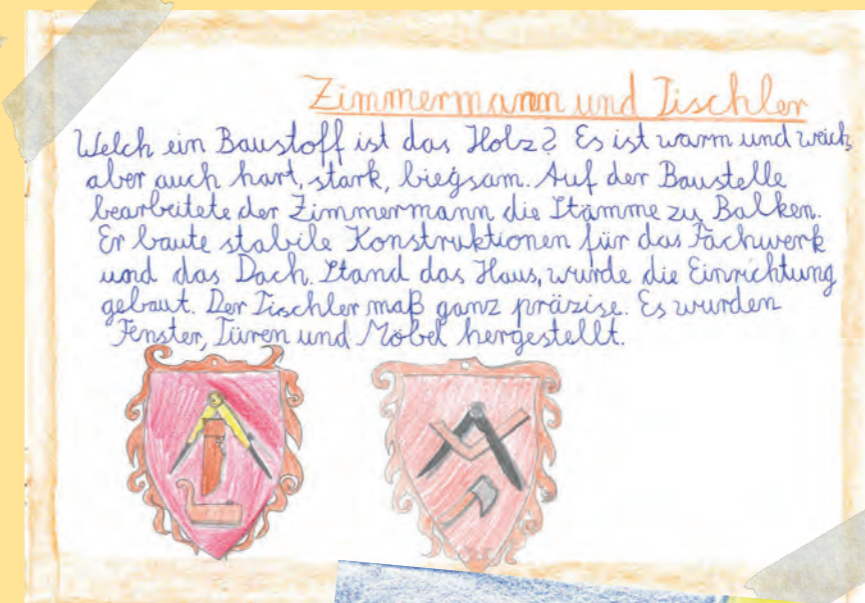 Zimmermann und Tischler
Welch ein Baustoff ist das Holz? Es ist warm und weich,
aber auch hart, stark, biegsam. Auf der Baustelle
bearbeitete der Zimmermann die Stämme zu Balken.
Er baute stabile Konstruktionen für das Fachwerk
und das Dach. Stand das Haus, wurde die Einrichtung
gebaut. Der Tischler maß ganz präzise. Es wurden
Fenster, Türen und Möbel hergestellt.